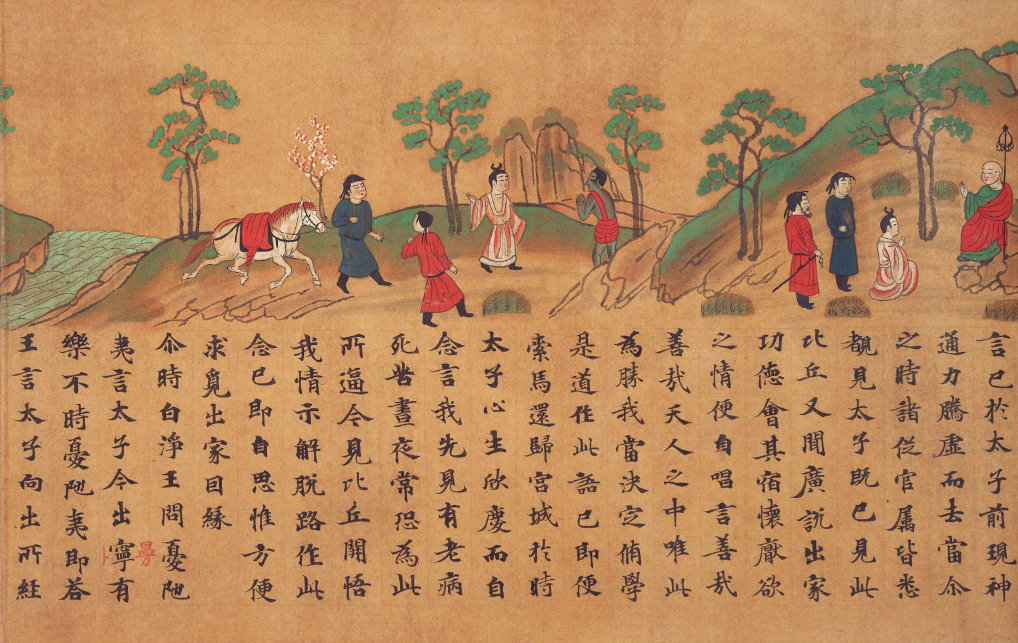 言已於太子前現神
通力騰虛而去當尒
之時諸従官属皆悉
覩見太子既已見此
比丘又聞廣說出家
功德會其宿懷厭欲
之情便自唱言善哉
善哉天人之中唯此
為勝我當決定脩學
是道作此語已即便
索馬還歸宮城於時
太子心生欣慶而自
念言我先見有老病
死苦晝夜常恐為此
所逼今見比丘開悟
我情示解脫路作此
念已即自思惟方便
求覓出家因縁
尒時白淨王問憂陁
夷言太子今出寧有
樂不時憂陁夷即答
王言太子向出所経